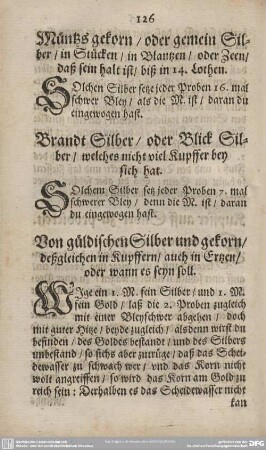 126
Müntzs gekorn / oder gemein Sil-
ber / in Stücken / in Blantzen / oder Zeen /
daß sein halt ist / biß in 14. Lothen.
SOlchen Silber setze jeder Proben 16. mal
schwer Bley / als die M. ist / daran du
eingewogen hast.
Brandt Silber / oder Blick Sil-
ber / welches nicht viel Kupffer bey
sich hat.
SOlchem Silber setz jeder Proben 7. mal
schwerer Bley / denn die M. ist / daran
du eingewogen hast.
Von güldischen Silber und gekorn /
deßgleichen in Kupffern / auch in Ertzen /
oder wann es seyn soll.
WIge ein 1. M. fein Silber / und 1. M.
fein Gold / laß die 2. Proben zugleich
mit einer Bleyschwer abgehen / doch
mit guter Hitze / beyde zugleich / als denn wirst du
befinden / des Goldes bestand / und des Silbers
unbestand / so sichs aber zutrüge / daß das Schei-
dewasser zu schwach wer / und das Korn nicht
wolt angreiffen / so wird das Korn am Gold zu
reich sein : Derhalben es das Scheidewasser nicht
kan